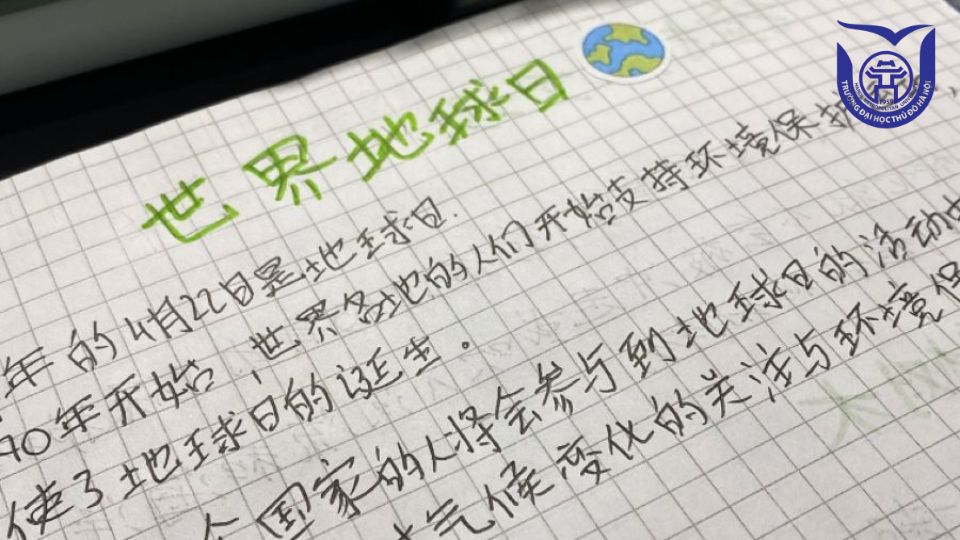 世界地球日
年的4月22日是地球日.
90年开始，世界各地的人们开始支持环境保护
使了地球日的诞生。
国家的人将会参与到地球日的活动
气候变化的关注与环境保
TRƯỜNG ĐẠI HỌC THỦ ĐÔ HÀ NỘI
HANOI METROPOLITAN UNIVERSITY
1959